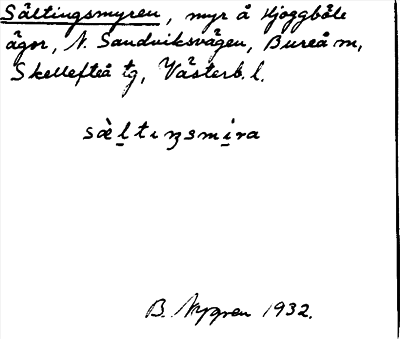 Sältingsmyren, myr å Hjoggböle
ägor, N. Sandviksvägen, Bureå m,
Skellefteå tg, Västerb. l.
sæ̀ltıŋsmira
B. Nygren 1932.